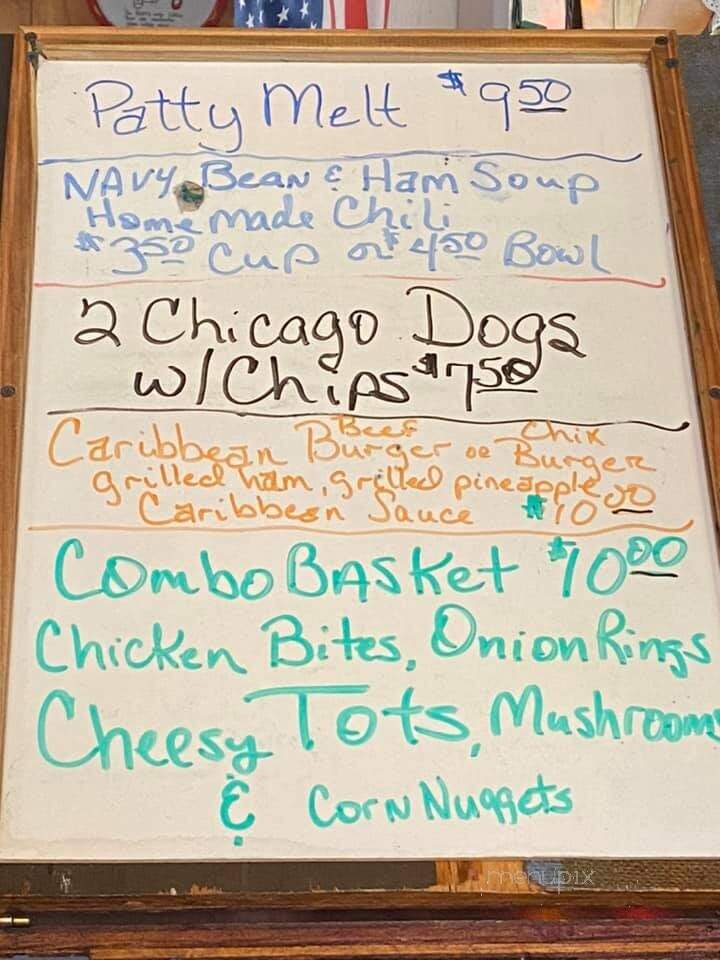 Patty Melt $9.50
NAVY Bean & Ham Soup
Homemade Chili
$3.50 Cup or $4.50 Bowl
2 Chicago Dogs
w/ Chips $7.50
Caribbean Beef Burger or Chix Burger
grilled ham, grilled pineapple
Caribbean Sauce $10.00
Combo BASKet $10.00
Chicken Bites, Onion Rings
Cheesy Tots, Mushrooms
& Corn Nuggets
menupix